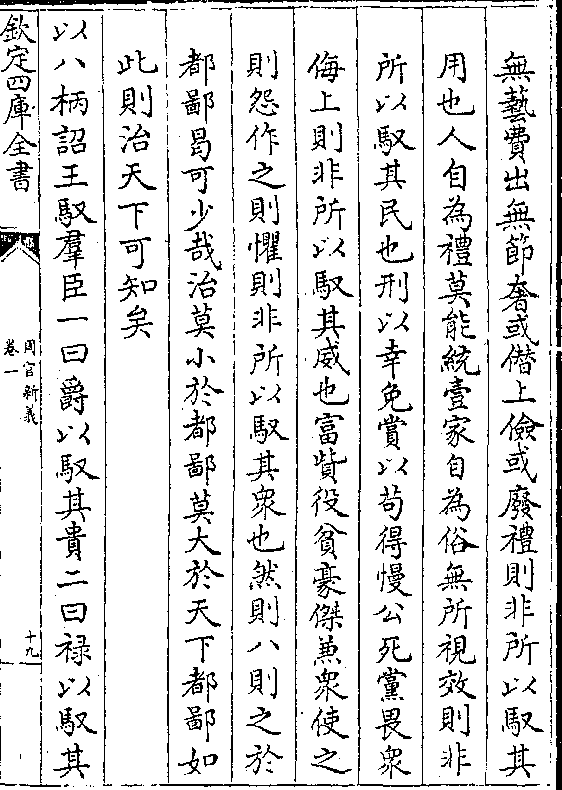 無藝費出無節奢或僭上儉或廢禮則非所以馭其
用也人自為禮莫能統壹家自為俗無所視效則非
所以馭其民也刑以幸免賞以苟得慢公死黨畏衆
侮上則非所以馭其威也富貲役貧豪傑兼衆使之
則怨作之則懼則非所以馭其衆也然則八則之於
都鄙曷可少哉治莫小於都鄙莫大於天下都鄙如
此則治天下可知矣
以八柄詔王馭羣臣一曰爵以馭其貴二曰禄以馭其
欽定四庫全書
周官新義
卷一
十九